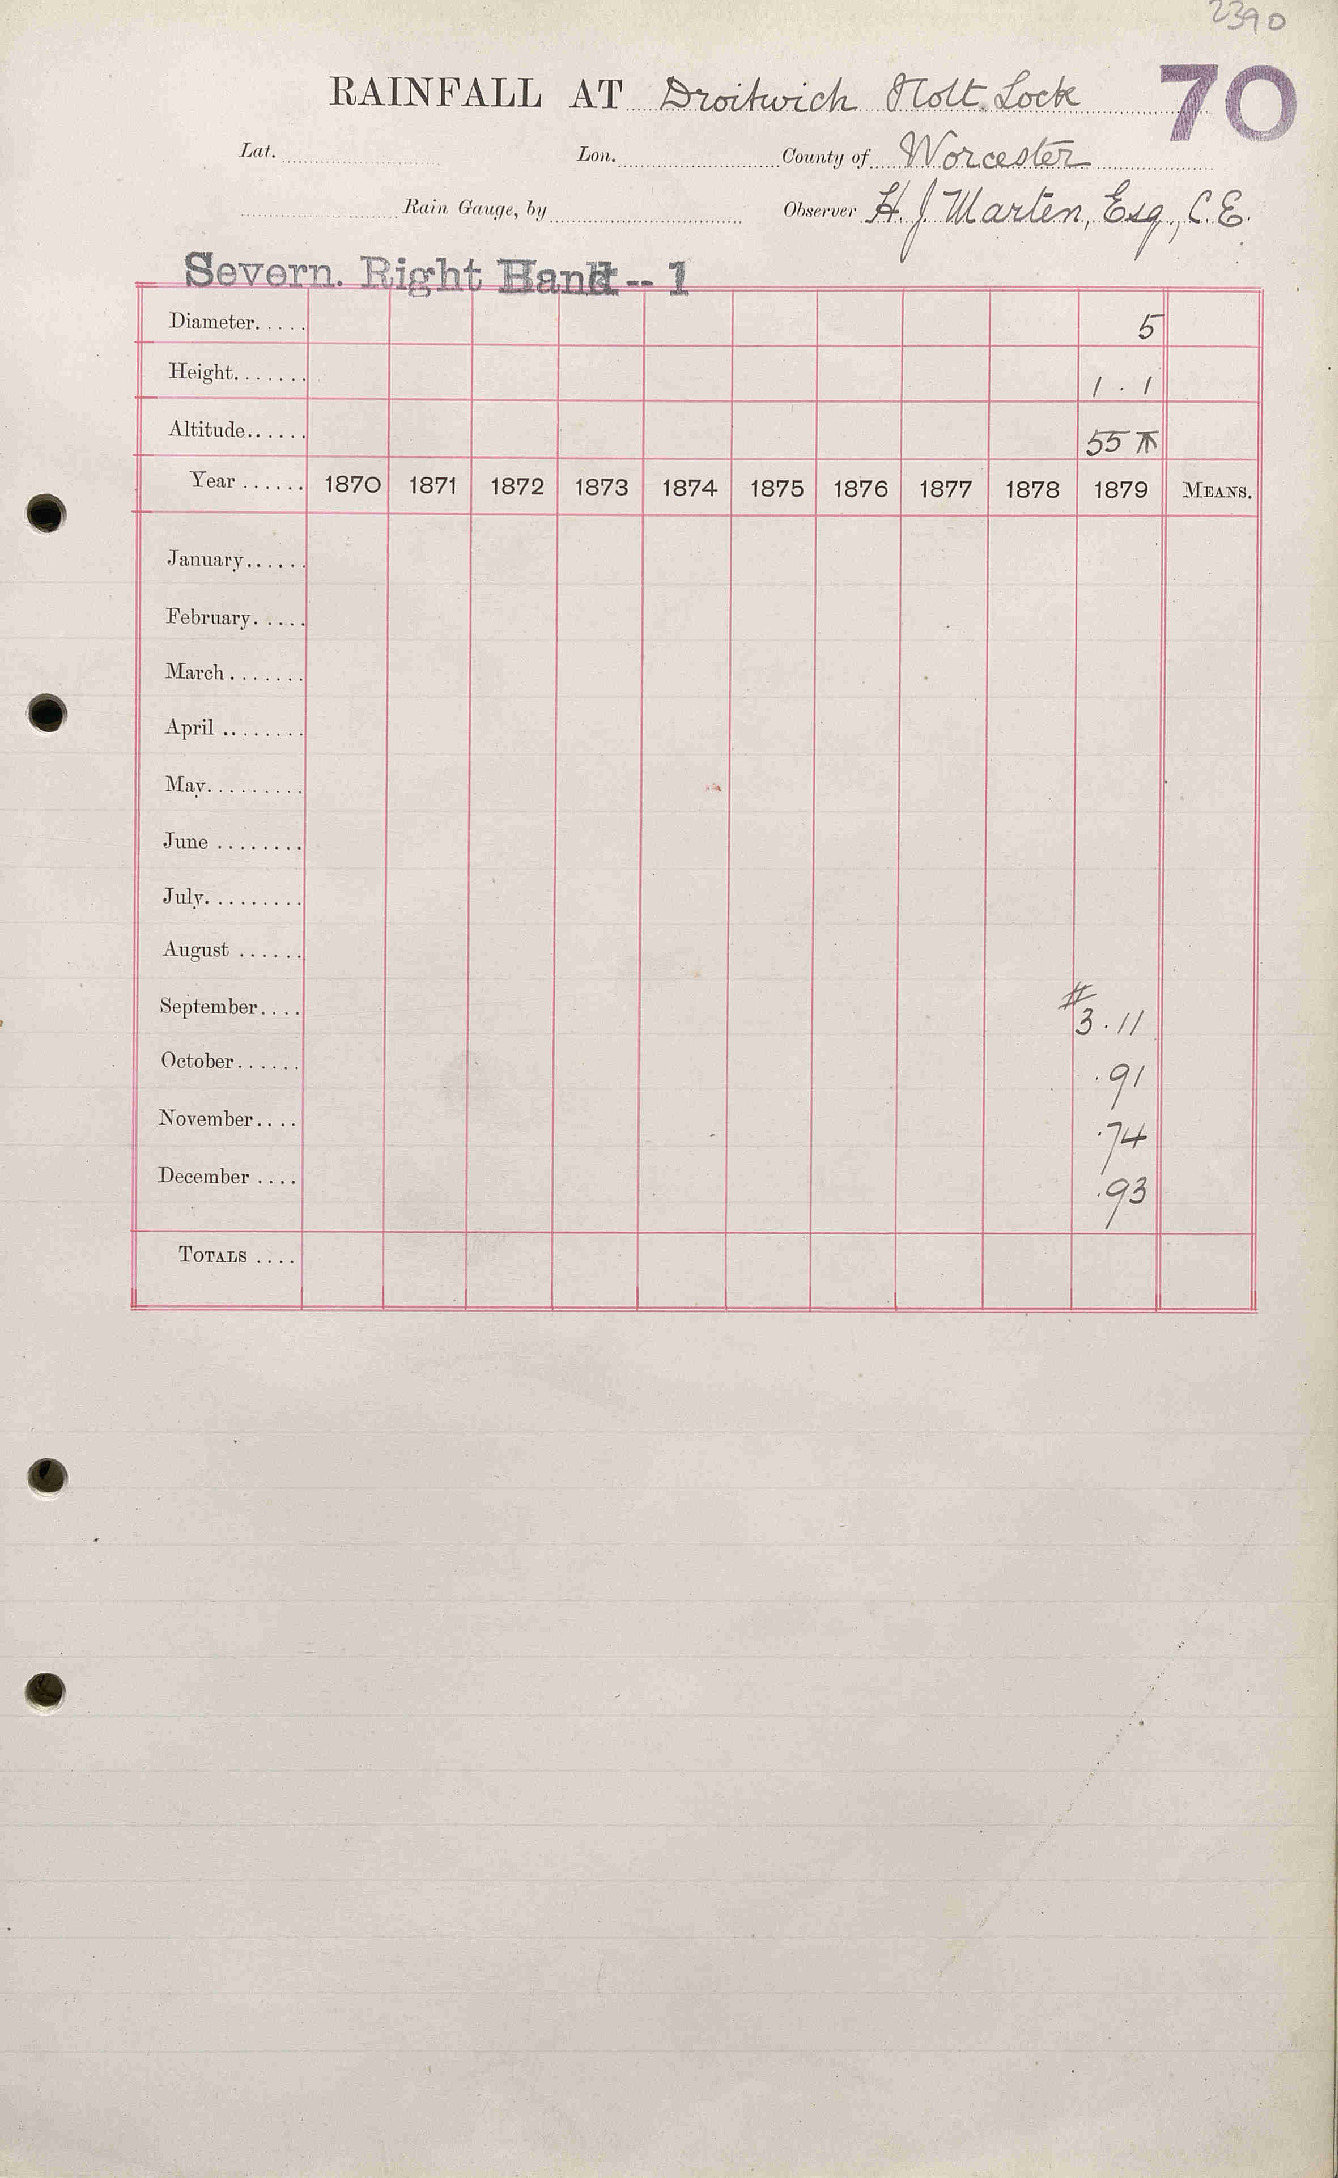 2390
RAINFALL AT Droitwich Holt Lock 70
Lat. Lon. County of Worcester
Rain Gauge, by Observer H. J. Marten, Esq., C.E.
Severn. Right Hand -- 1
Diameter..... 5
Height....... 1 . 1
Altitude...... 55
Year ...... 1870 1871 1872 1873 1874 1875 1876 1877 1878 1879 MEANS.
January......
February.....
March .......
April ........
May.........
June ........
July.........
August ......
September.... # 3.11
October...... .91
November.... .74
December .... .93
TOTALS ....